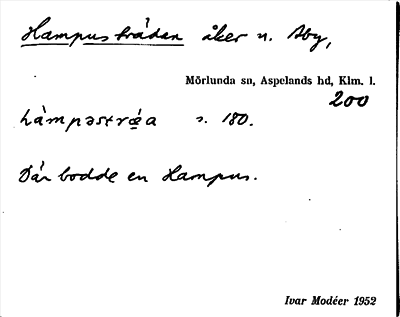 Hampusträdan åker n. Åby,
Mörlunda sn, Aspelands hd, Klm. l.
200
hàmpəstrǽa s. 180.
Där bodde en Hampus.
Ivar Modéer 1952